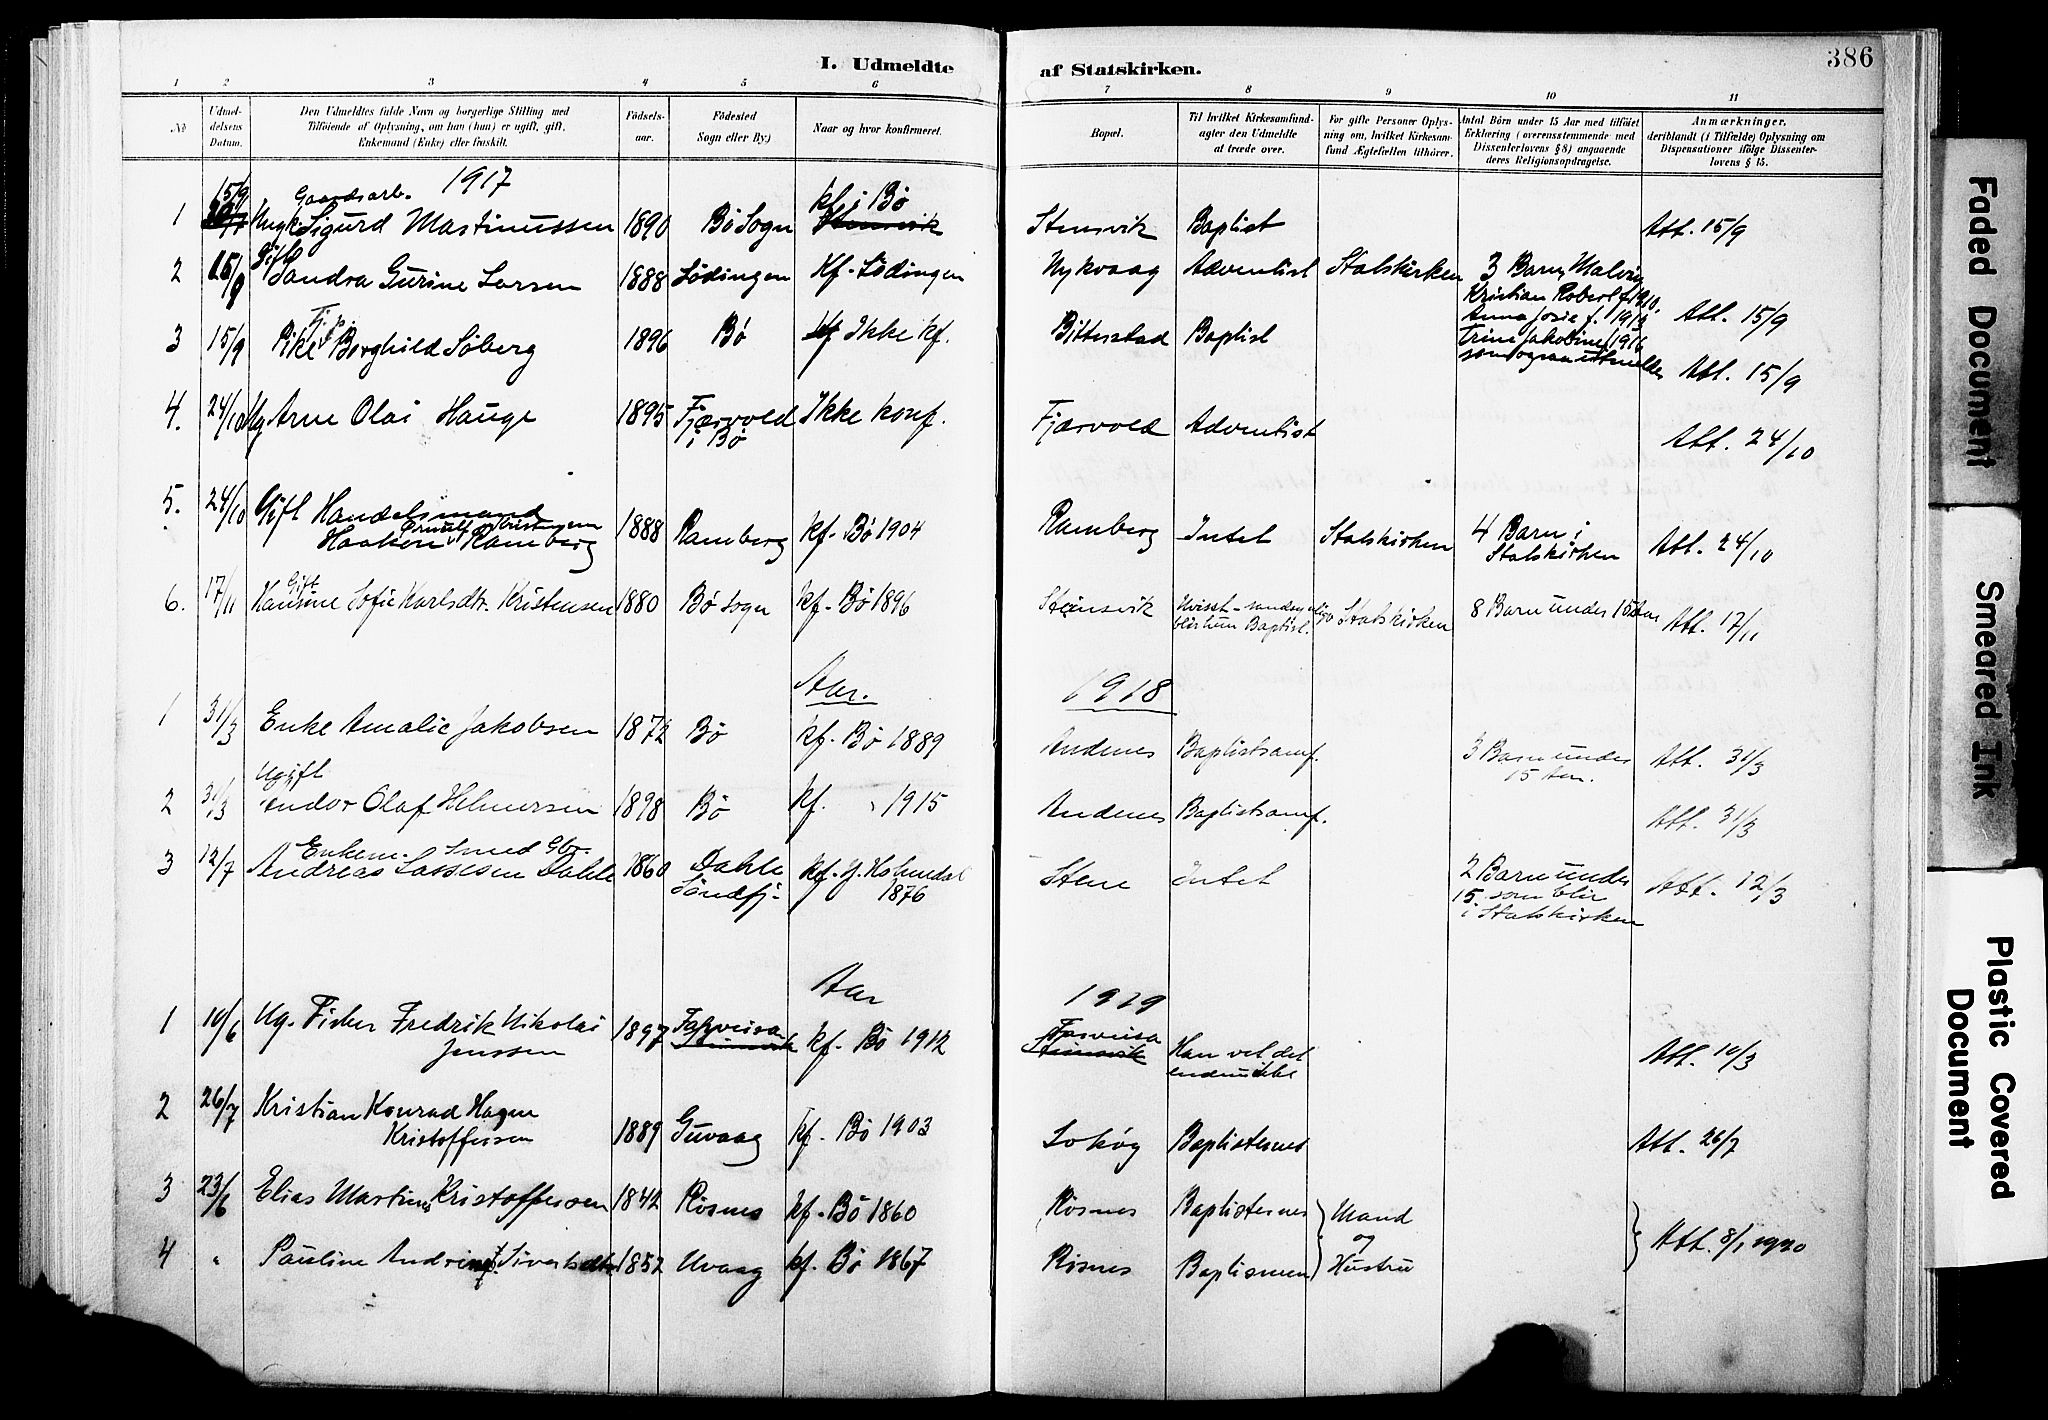 I. Udmeldte af Statskirken.
386
1 2 3 4 5 6 7 8 9 10 11
No
Udmel-
delsens
Datum.
Den Udmeldtes fulde Navn og borgerlige Stilling med
Tilføiende af Oplysning, om han (hun) er ugift, gift,
Enkemand (Enke) eller fraskilt.
Fødsels-
aar.
Fødested
Sogn eller By.)
Naar og hvor konfirmeret.
Bopæl.
Til hvilket Kirkesamfund-
agter den Udmeldte
at træde over.
For gifte Personer Oplys-
ning om, hvilket Kirkesam-
fund Ægtefællen tilhører.
Antal Børn under 15 Aar med tilføiet
Erklæring (overensstemmende med
Dissenterlovens § 8) angaaende
deres Religionsopdragelse.
Anmærkninger,
deriblandt (i Tilfælde) Oplysning om
Dispensationer ifølge Dissenter-
lovens § 15.
1917
15/9 Gaardsarb. kf i Bø
1 Ungk. Sigurd Martinussen 1890 Bø Sogn Stensvik Stensvik Baptist Att. 15/9
Gift
2 15/9 Sandra Gurine Larsen 1888 Lødingen Kf. Lødingen Nykvaag Adventist Statskirken 3 Barn, Malvin
Kristian Robert f. 1910.
Anna Josie f. 1913 Att. 15/9
3 15/9 Pike Borghild Søberg 1896 Bø kf Ikke kf. Bitterstad Baptist Trine Jakobine f 1916
som ogsaa utmeldes Att. 15/9
4. 24/10 Ug Arne Olai Hauge 1895 Fjærvold Ikke konf. Fjærvold Adventist Att. 24/10
i Bø
5. 24/10 Gift Handelsmand
Haakon Ramberg 1888 Ramberg kf. Bø 1904 Ramberg Intet Statskirken 4 Barn i
Statskirken Att. 24/10
Gift
6. 17/11 Hansine Sofie Karlsdtr. Kristensen 1880 Bø Sogn kf. Bø 1896 Steinsvik Uvisst - sandsynligv Statskirken 8 Barn under 15 Aar Att. 17/11
blir hun Baptist.
Aar. 1918
1 31/3 Enke Amalie Jakobsen 1872 Bø kf. Bø 1889 Andenes Baptistsamf. 3 Barn under
15 Aar. Att. 31/3
Ugift
2 31/3 Andor Olaf Helmersen 1898 Bø kf. " 1915 Andenes Baptistsamf. Att. 31/3
Enkem. Smed Gbr.
3 12/7 Andreas Lassesen Dahle 1860 Dahle kf. i Holmedal Stene Intet 2 Barn under Att. 12/3
Søndfj. 1876 15 som blir
i Statskirken
Aar 1919
1 10/6 Ug. Fisker Fredrik Nikolai 1897 Farveisa kf. Bø 1912 Farveisa Han vet det Att. 10/3
Jenssen Steinsvik Steinsvik endnu ikke
2 26/7 Kristian Konrad Hagen
Kristoffersen 1889 Guvaag kf. Bø 1903 Baptisternes Att. 26/7
3 23/6 Elias Martinus Kristoffersen 1842 Røsnes kf. Bø 1860 Røsnes Baptisternes Mand
og Att. 8/1 1920
4 " Pauline Andrine f. Sivertsdtr. 1852 Uvaag kf. Bø 1867 Røsnes Baptismen Hustru
Faded Document
Smeared Ink
Plastic Covered
Document